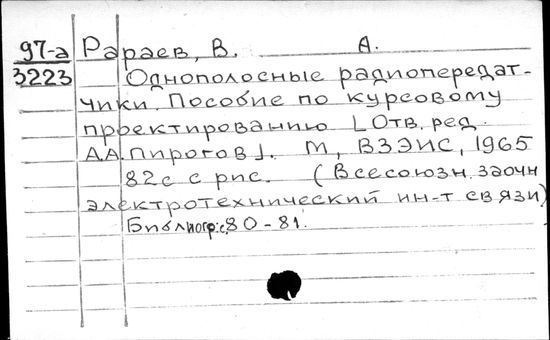 97-а Рараев, В. А.
3223 Однополосные радиопередат-
чики. Пособие по курсовому
проектированию [Отв. ред.
А.А. Пирогов]. М, ВЗЭИС, 1965
82с с рис. (Всесоюзн. заочн
электротехнический ин-т связи)
Библиогр: с. 80-81.